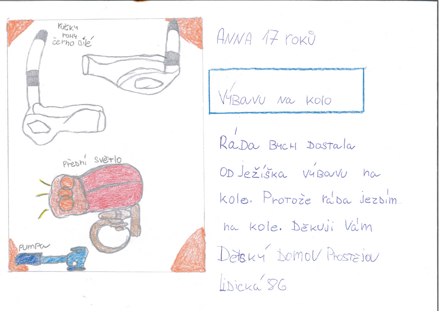 ROHY
ČERNO BÍLÉ
PŘEDNÍ SVĚTLO
PUMPA
ANNA 17 ROKŮ
VÝBAVU NA KOLO
RÁDA BYCH DOSTALA
OD JEŽÍŠKA VÝBAVU NA
KOLO. PROTOŽE RÁDA JEZDÍM
NA KOLE. DĚKUJI VÁM
DĚTSKÝ DOMOV PROSTĚJOV
LIDICKÁ 86